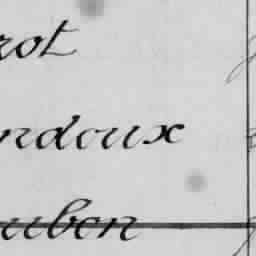 rot
ndoux
uben